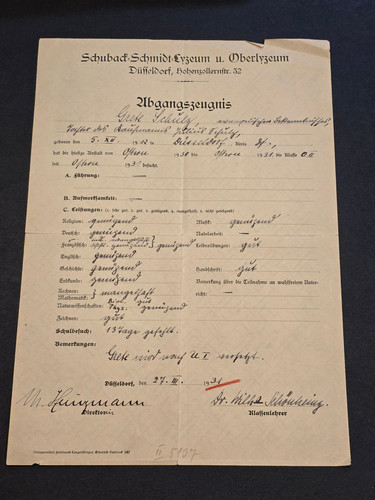 Schuback-Schmidt-Lyzeum u. Oberlyzeum
Düsseldorf, Hohenzollernstr. 32
Abgangszeugnis
Grete Schulz, evangelischen Bekenntnisses,
Tochter des Kaufmanns Julius Schulz,
geboren den 5. XII. Düsseldorf, Kreis
hat die hiesige Anstalt von Ostern 1930 bis Ostern 1931 die Klasse O II
seit Ostern 193 besucht.
A. Führung: —
B. Aufmerksamkeit: —
C. Leistungen: (1. sehr gut, 2. gut, 3. genügend, 4. mangelhaft, 5. nicht genügend)
Religion: genügend Musik: genügend
Deutsch: genügend Nadelarbeit: —
Französisch: mangelh. genügend } genügend Leibesübungen: gut
Englisch: genügend
Geschichte: genügend Handschrift: gut
Erdkunde: genügend Bemerkung über die Teilnahme an wahlfreiem Unter-
Rechnen: richt: —
Mathematik: } mangelhaft
Naturwissenschaften: Biol. gut
genügend
Zeichnen: gut
Schulbesuch: 13 Tage gefehlt.
Bemerkungen:
Grete wird nach U. I versetzt.
Düsseldorf, den 27. III. 1931
M. Dr.
Direktorin Klassenlehrer
II 5137